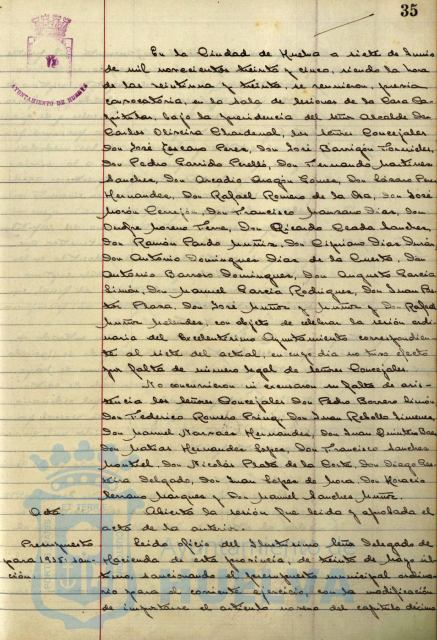 35
AYUNTAMIENTO DE HUELVA
En la Ciudad de Huelva a siete de Junio
de mil novecientos treinta y cinco, siendo la hora
de las veintiuna y treinta, se reunieron, previa
convocatoria, en la Sala de Sesiones de la Casa Ca-
pitular, bajo la presidencia del señor Alcalde Don
Carlos Oliveira Chardenal, los señores Concejales
Don José Toscano Perez, Don José Barrigón Fornieles,
Don Pedro Garrido Perelló, Don Fernando Martinez
Sanchez, Don Arcadio Aragón Gomez, Don Lázaro Perez
Hernandez, Don Rafael Romero de la Osa, Don José
Morón Cerrejón, Don Francisco Manzano Diaz, Don
Onofre Moreno Terre, Don Ricardo Ceada Sanchez,
Don Ramón Pardo Muñiz, Don Cipriano Diaz Durán,
Don Antonio Dominguez Diaz de la Cuesta, Don
Antonio Barroso Dominguez, Don Augusto Garcia
Limón, Don Manuel Garcia Rodriguez, Don Juan Re-
Plaza, Don José Muñoz y Muñoz y Don Rafael
Muñoz, con objeto de celebrar la sesión ordi-
naria del Excelentísimo Ayuntamiento correspondien-
te al siete del actual, en cuyo dia no tuvo efecto
por falta de número legal de señores Concejales.
No concurrieron ni excusaron su falta de asis-
tencia los señores Concejales Don Pedro Borrero Limón,
Don Federico Romero Don Juan Rebollo Jimenez,
Don Manuel Narvaez Hernandez, Don Juan Quintero Baez,
Don Matias Hernandez Lopez, Don Francisco Sanchez
Montiel, Don Nicolás Prats de la Don Diego
Delgado, Don Juan Lopez de Mora, Don Horacio
Serrano Márquez y Don Manuel Sanchez Muñoz.
Acta
Abierta la sesión fue leida y aprobada el
acta de la anterior.
Presupuesto
para 1935: san-
ción.
Leido oficio del Ilustrísimo Señor Delegado de
Hacienda de esta provincia, de treinta de Mayo úl-
timo, sancionando el presupuesto municipal ordina-
rio para el corriente ejercicio, con la modificación
de importarse el artículo noveno del capítulo décimo
Ayuntamiento de